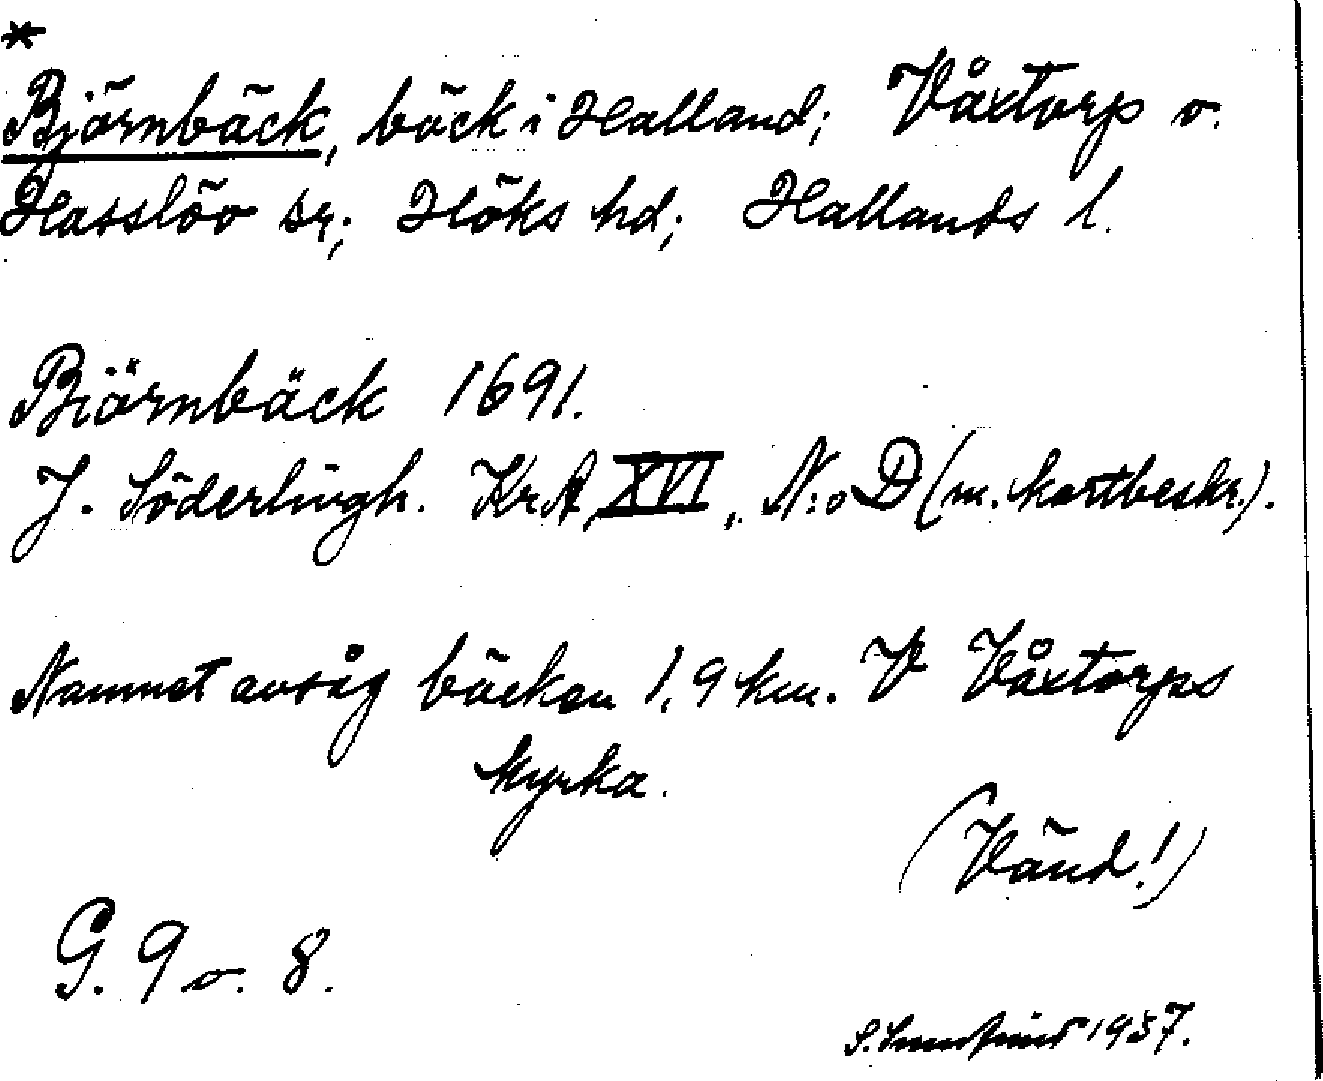 *
Björnbäck, bäck i Halland; Våxtorp o.
Hasslöv sn; Höks hd; Hallands l.
Biörnbäck 1691.
J. Söderlingh. Kr.A, XVI, N:o D (m. kartbeskr.).
Namnet avsåg bäcken 1,9 km. V Våxtorps
kyrka.
(Vänd!)
G. 9 o. 8.
S. 1937.